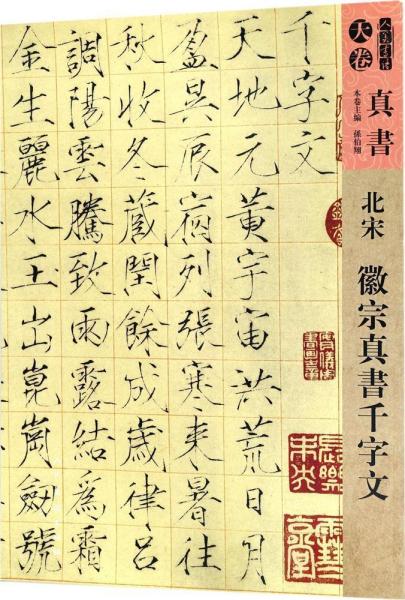 人美書譜
天卷
真書
本卷主編 孫伯翔
北宋 徽宗真書千字文
千字文
天地元黃宇宙洪荒日月
盈昃辰宿列張寒来暑往
秋收冬藏閏餘成歲律呂
調陽雲騰致雨露結為霜
金生麗水玉出崑崗劒號